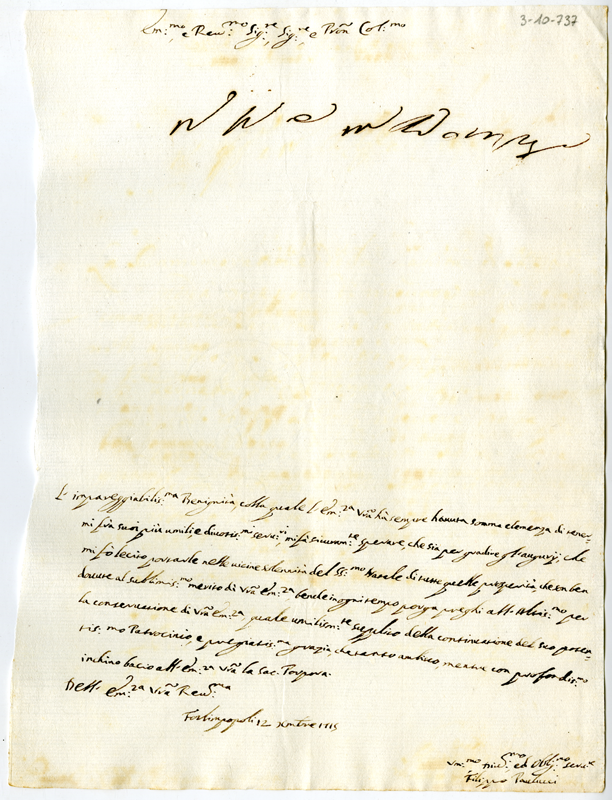 3-10-737
Em:mo, e Rev:mo Sig:re Sig:re e Prõn Col:mo
L'impareggiabilis:ma Benignità, colla quale l'Em:za Vrã hà sempre hauuta somma clemenza di tener-
mi frà suoi più umili, e deuotis:mi serui:, mi fà sicuram:te sperare, che sia per gradire gl'augurij, che
mi fò lecito portarle nelle uicine solennità del SS:mo Natale di tutte quelle prosperità, che son ben
douute al sublimis:mo merito di Vrã Em:za bende in ogni tempo porga prieghi all'Altis:mo per
la conseruazione di Vrã Em:za, quale umilism:te supplico della continuazione del suo poten-
tis:mo Patrocinio, e pregiatis:ma grazia, che tanto ambisco, mentre con profondis:mo
inchino bacio all'Em:za Vrã la Sac: Porpora.
Dell'Em:za Vrã Reu:ma
Forlimpopoli 12 Xmbre 1715
Um:mo ed Obl:mo Seru:e
Filippo Paulucci